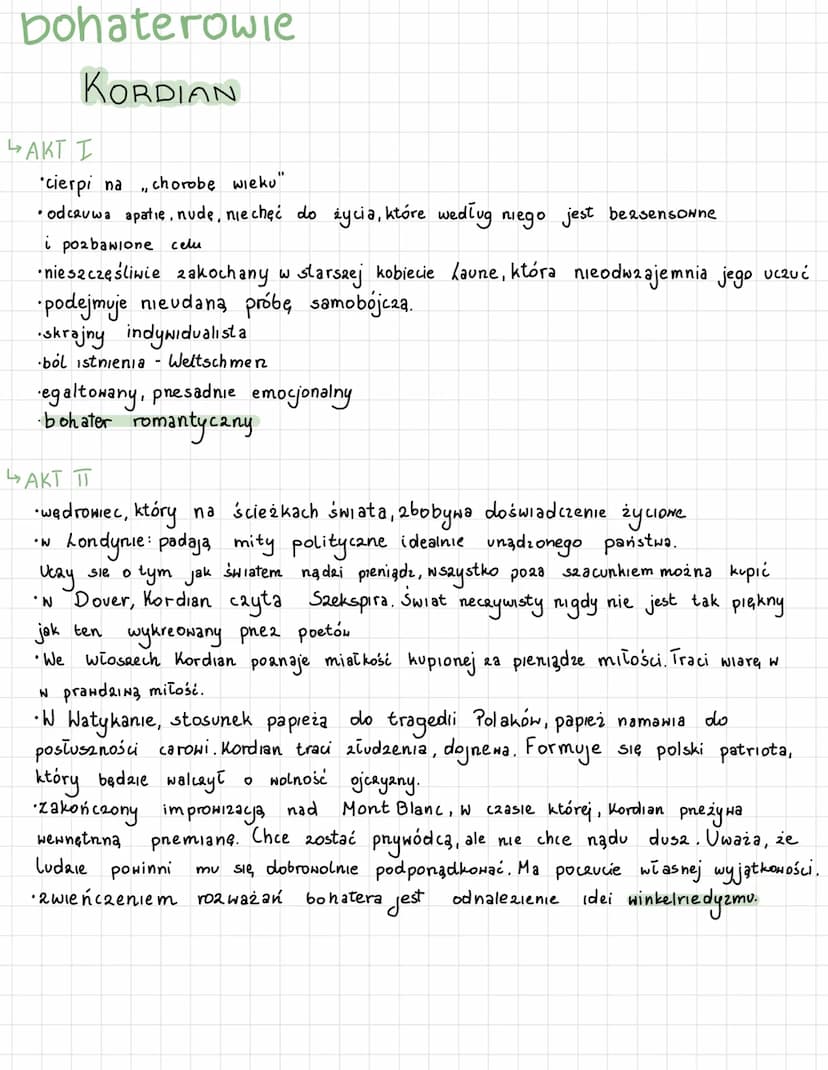 bohaterowie
KORDIAN
↳ AKT I
•cierpi na „chorobę wieku"
•odczuwa apatię, nudę, niechęć do życia, które według niego jest bezsensowne
i pozbawione celu
•nieszczęśliwie zakochany w starszej kobiecie Laurze, która nieodwzajemnia jego uczuć
•podejmuje nieudaną próbę samobójczą.
•skrajny indywidualista
•ból istnienia - Weltschmerz
•egaltowany, przesadnie emocjonalny
•bohater romantyczny
↳ AKT II
•wędrowiec, który na ścieżkach świata, zbobywa doświadczenie życiowe
•w Londynie: padają mity polityczne idealnie urządzonego państwa.
Uczy się o tym jak światem rządzi pieniądz, wszystko poza szacunkiem można kupić
•w Dover, Kordian czyta Szekspira. Świat rzeczywisty nigdy nie jest tak piękny
jak ten wykreowany przez poetów
•We Włoszech Kordian poznaje miałkość kupionej za pieniądze miłości. Traci wiarę w
w prawdziwą miłość.
•W Watykanie, stosunek papieża do tragedii Polaków, papież namawia do
posłuszności carowi. Kordian traci złudzenia, dojrzewa. Formuje się polski patriota,
który będzie walczył o wolność ojczyzny.
•zakończony improwizacją nad Mont Blanc, w czasie której, Kordian przeżywa
wewnętrzną przemianę. Chce zostać przywódcą, ale nie chce rządu dusz. Uważa, że
ludzie powinni mu się dobrowolnie podporządkować. Ma poczucie własnej wyjątkowości.
•zwieńczeniem rozważań bohatera jest odnalezienie idei winkelriedyzmu.